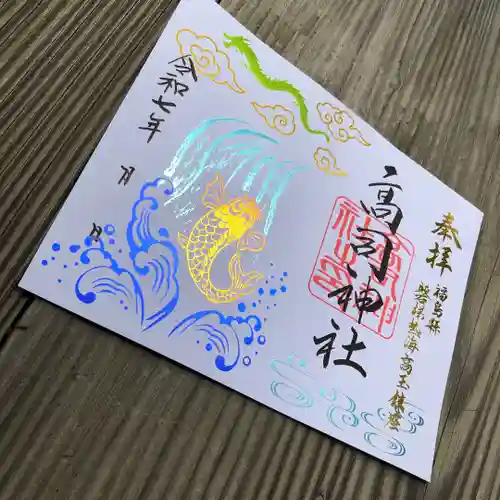 奉拝
福島県
磐梯熱海高玉鎮座
高司神社
令和七年
月
日